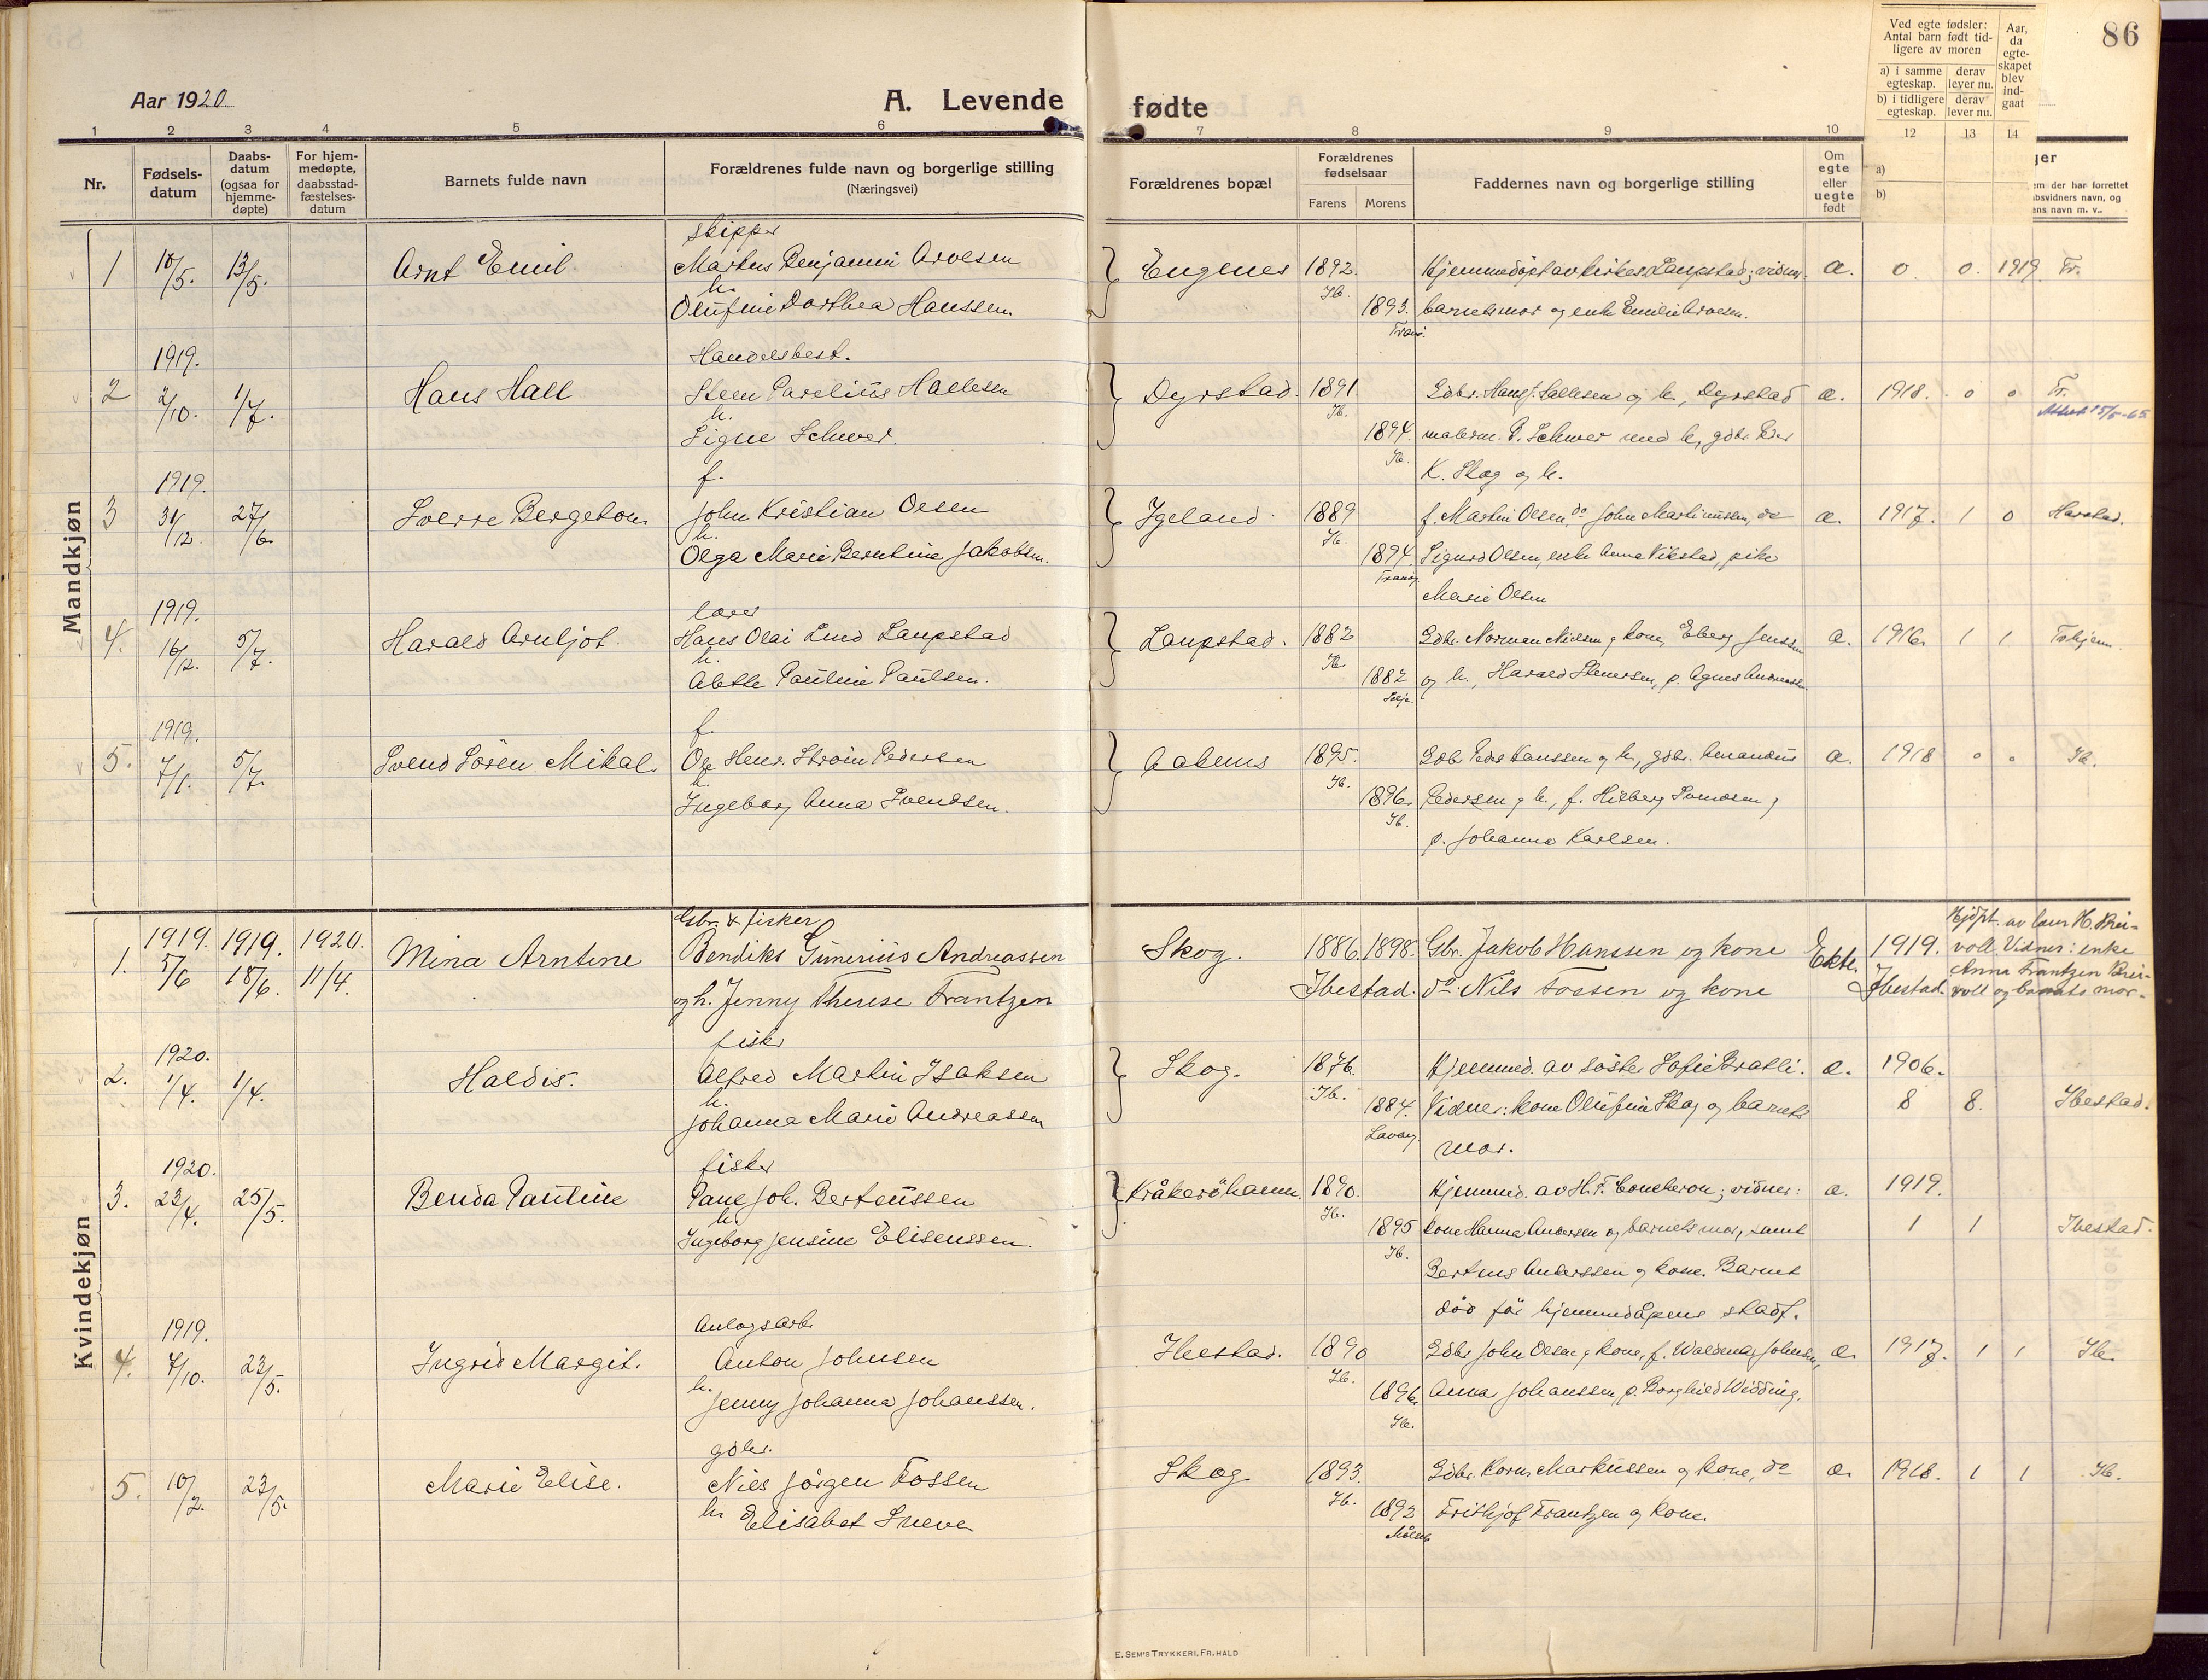 86
Aar 1920
A. Levende fødte
Ved egte fødsler: Antal barn født tidligere av moren
Aar, da egteskapet blev indgaat
a) i samme egteskap.
derav lever nu.
b) i tidligere egteskap.
derav lever nu.
1 2 3 4 5 6 7 8 9 10 12 13 14
Nr.
Fødselsdatum
Daabsdatum (ogsaa for hjemmedøpte)
For hjemmedøpte, daabsstadfæstelsesdatum
Barnets fulde navn
Forældrenes fulde navn og borgerlige stilling (Næringsvei)
Forældrenes bopæl
Forældrenes fødselsaar
Farens Morens
Faddernes navn og borgerlige stilling
Om egte eller uegte født
a)
b)
ger
em der har forrettet
absvidners navn, og
ens navn m. v..
Mandkjøn
skipper
1 10/5. 13/5. Arnt Emil Markus Benjamin Arvesen Engenes 1892. Hjemmedøpt av Laupstad; vidner a. 0. 0. 1919 Tr.
h. Ib.
Olufine Dorthea Hanssen 1893. barnets mor og enke Emilie Arvesen.
Trans.
1919. Handelsbest.
2 2/10. 1/7. Hans Hall Steen Parelius Hallesen Dyrstad. 1891 Gdbr. Hans J. Hallesen og h., Dyrstad a. 1918. 0 0 Tr.
h. Ib. Attest 15/5-65
Signe Schwer. 1894. malerm. P. Schwer med h., gdbr. Peder
Ib.
1919. f. K. Skog og h.
3 31/12. 27/6. Sverre Bergeton John Kristian Olsen Igeland 1889 f. Martin Olsen do John Martinussen, do a. 1917. 1 0 Harstad.
h. Ib.
Olga Marie Berntine Jakobsen. 1894. Sigurd Olsen, enke Anna Vikstad, pike
Tranøy
Marie Olsen
1919. lærer
4. 16/12. 5/7. Harald Arnljot. Hans Olai Lund Laupstad Laupstad. 1882 Gdbr. Norman Nielsen og kone, Eberg Jenssen a. 1916. 1 1
h. Ib.
Alette Pauline Paulsen. 1882 og h., Harald Stenersen, p. Agnes Andreassen
1919. f.
5. 7/1. 5/7. Svend Sören Mikal. Ole Henr. Strøm Pedersen Aalenes 1895. Gdb. Peder Hanssen og h., gdbr. Amandus a. 1918 0 0 Ib.
h. Ib.
Ingeborg Anna Svendsen. 1896. Pedersen og h., f. Hilberg Svendsen og
Ib.
p. Johanna Karlsen.
Kvindekjøn
Gbr. & fisker
1. 1919. 5/6 1919. 18/6. 1920. 11/4. Mina Arntine Bendiks Gunerius Andreassen Skog. 1886. 1898. Gbr. Jakob Hanssen og kone Ekte. 1919. Hjdpt. av lærer H. Breivoll. Vidner: enke Anna Frantzen Breivoll og barnets mor.
og h. Jenny Therese Frantzen Ibestad. do. Nils Fossen og kone Ibestad.
1920. fisker
2. 1/4. 1/4. Haldis. Alfred Martin Isaksen Skog. 1876. Hjemmed. av søster Sofie Bratli. a. 1906.
h. Ib.
Johanna Marie Andreassen 1884. Vidner: kone Olufine Skog og barnets 8 8. Ibestad.
Lavang.
mor.
1920. fisker
3. 23/4. 25/5. Benda Pauline Paul Joh. Berteussen Kråkerøhamn. 1890. Hjemmed. av H. F. Concheron; vidner: a. 1919.
h. Ib.
Ingeborg Jensine Eliseussen. 1895 kone Hanna Andersen og barnets mor, samt 1 1 Ibestad.
Ib.
Berteus Anderssen og kone. Barnet
død før hjemmedåpens stadf.
1919. Anlægsarb.
4. 7/10. 23/5. Ingrid Margit. Anton Johnsen Ibestad. 1890 Gdbr. John Olsen og kone, f. Waldemar Johnsen, a. 1917. 1 1 Ib.
h. Ib.
Jenny Johanna Johanssen. 1896. Anna Johanssen, p. Borghild Widding.
Ib.
gdbr.
5. 10/2. 23/5. Marie Elise. Nils Jörgen Fossen Skog. 1893. Gdbr. Korn. Markussen og kone, do a. 1918. 1 1 Ib.
Ib.
h. Elisabet Sneve 1892 Frithjof Frantzen og kone.
Målselv
E. SEM'S TRYKKERI, FR. HALD